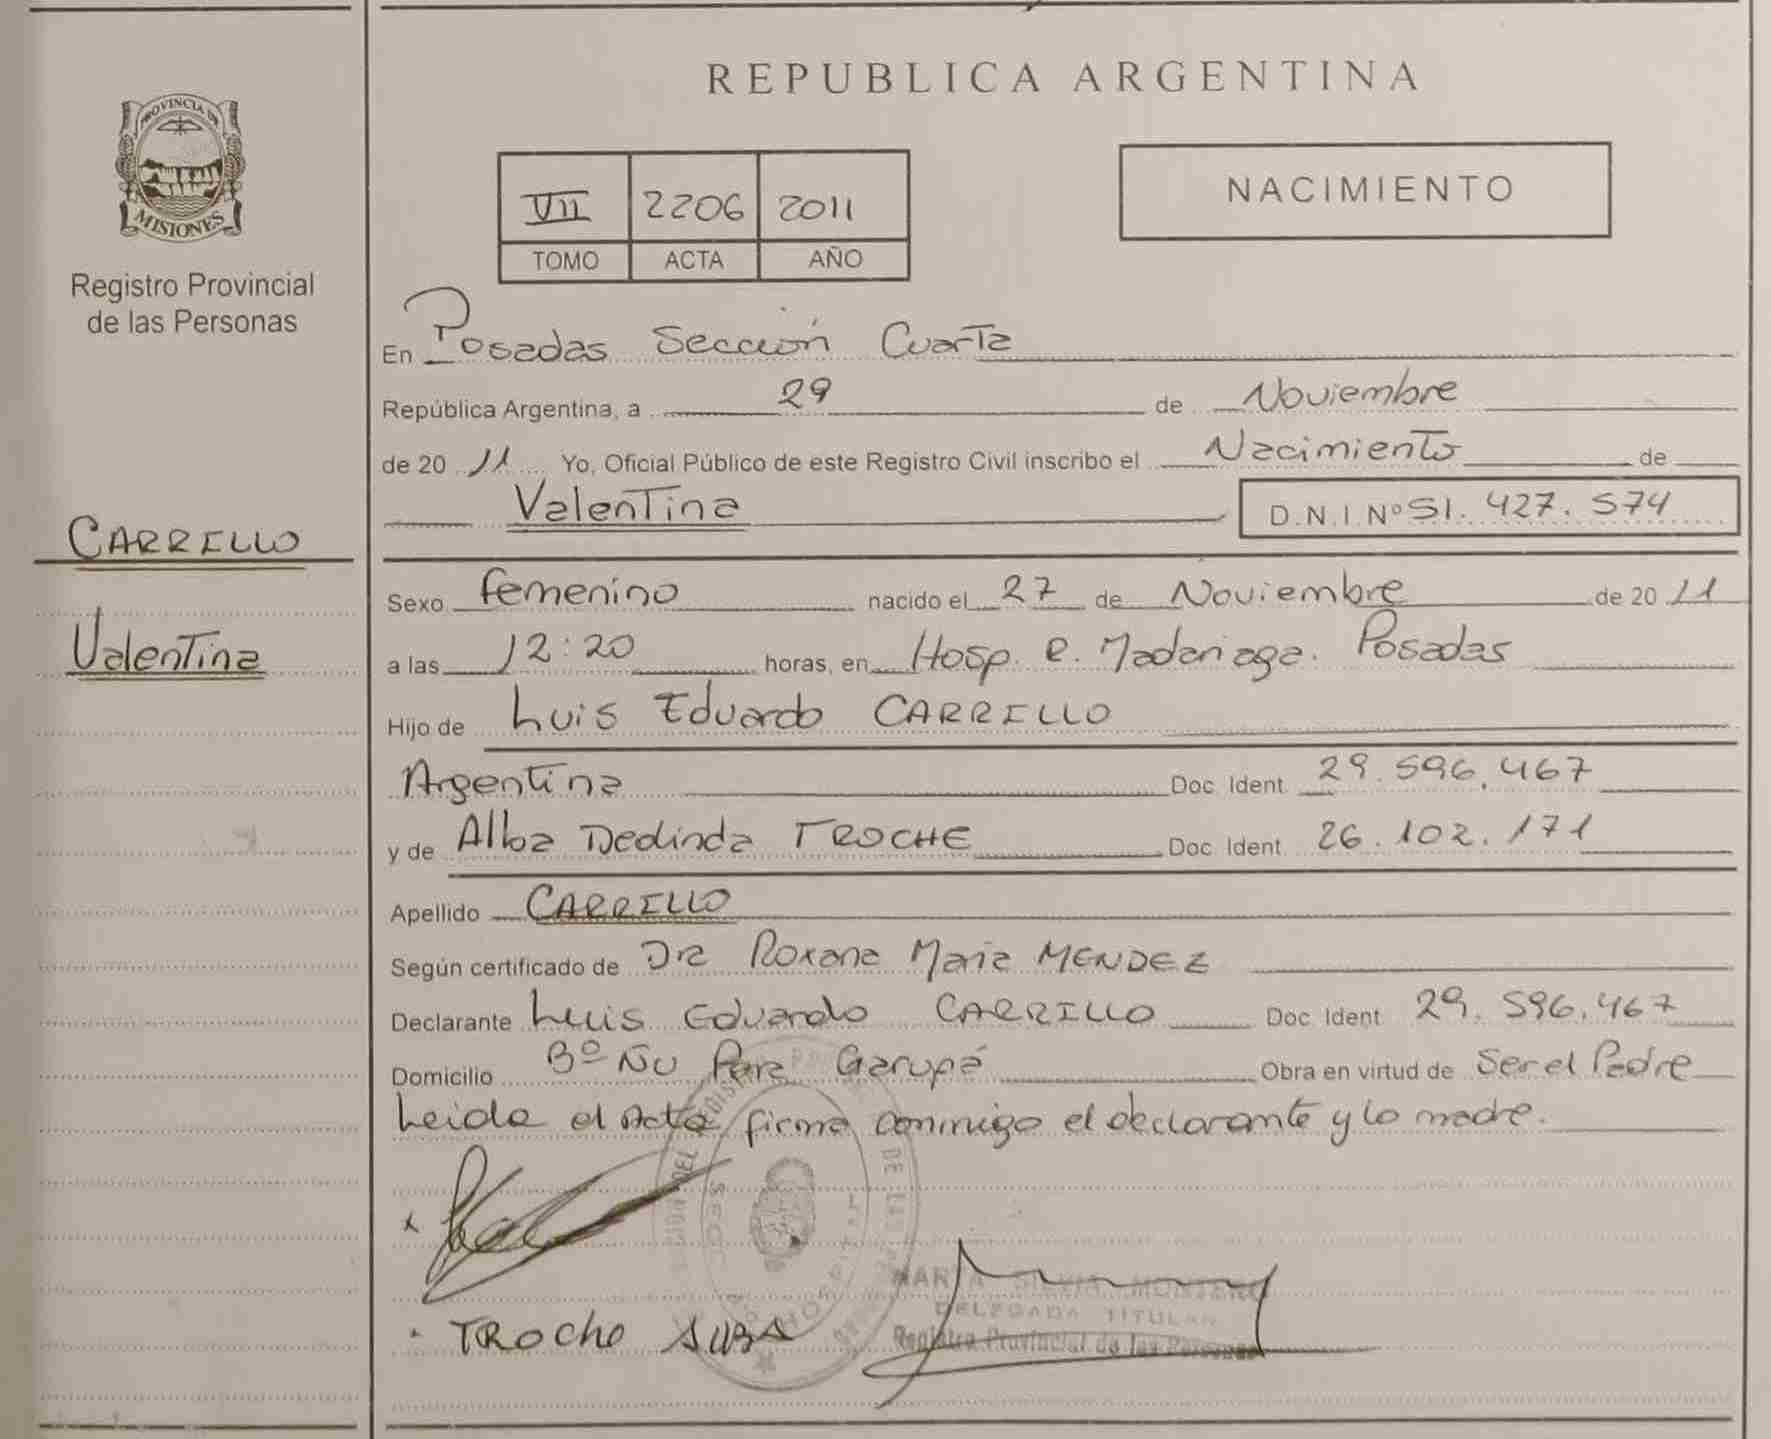 REPUBLICA ARGENTINA
PROVINCIA DE
MISIONES
Registro Provincial
de las Personas
VII 2206 2011
TOMO ACTA AÑO
NACIMIENTO
En Posadas Sección Cuarta
República Argentina, a 29 de Noviembre
de 20 11 Yo, Oficial Público de este Registro Civil inscribo el Nacimiento de
Valentina D.N.I Nº 51.427.574
CARRILLO
Valentina
Sexo femenino nacido el 27 de Noviembre de 20 11
a las 12:20 horas, en Hosp. R. Madariaga. Posadas
Hijo de Luis Eduardo CARRILLO
Argentina Doc Ident 29.596.467
y de Alba Deolinda TROCHE Doc Ident 26.102.171
Apellido CARRILLO
Según certificado de Dra Roxana Maria MENDEZ
Declarante Luis Eduardo CARRILLO Doc Ident 29.596.467
Domicilio Bº Ñu Pora Garupá Obra en virtud de Ser el Padre
Leida el Acta firma conmigo el declarante y la madre.
TROCHE ALBA
DELEGADA TITULAR
Registro Provincial de las Personas